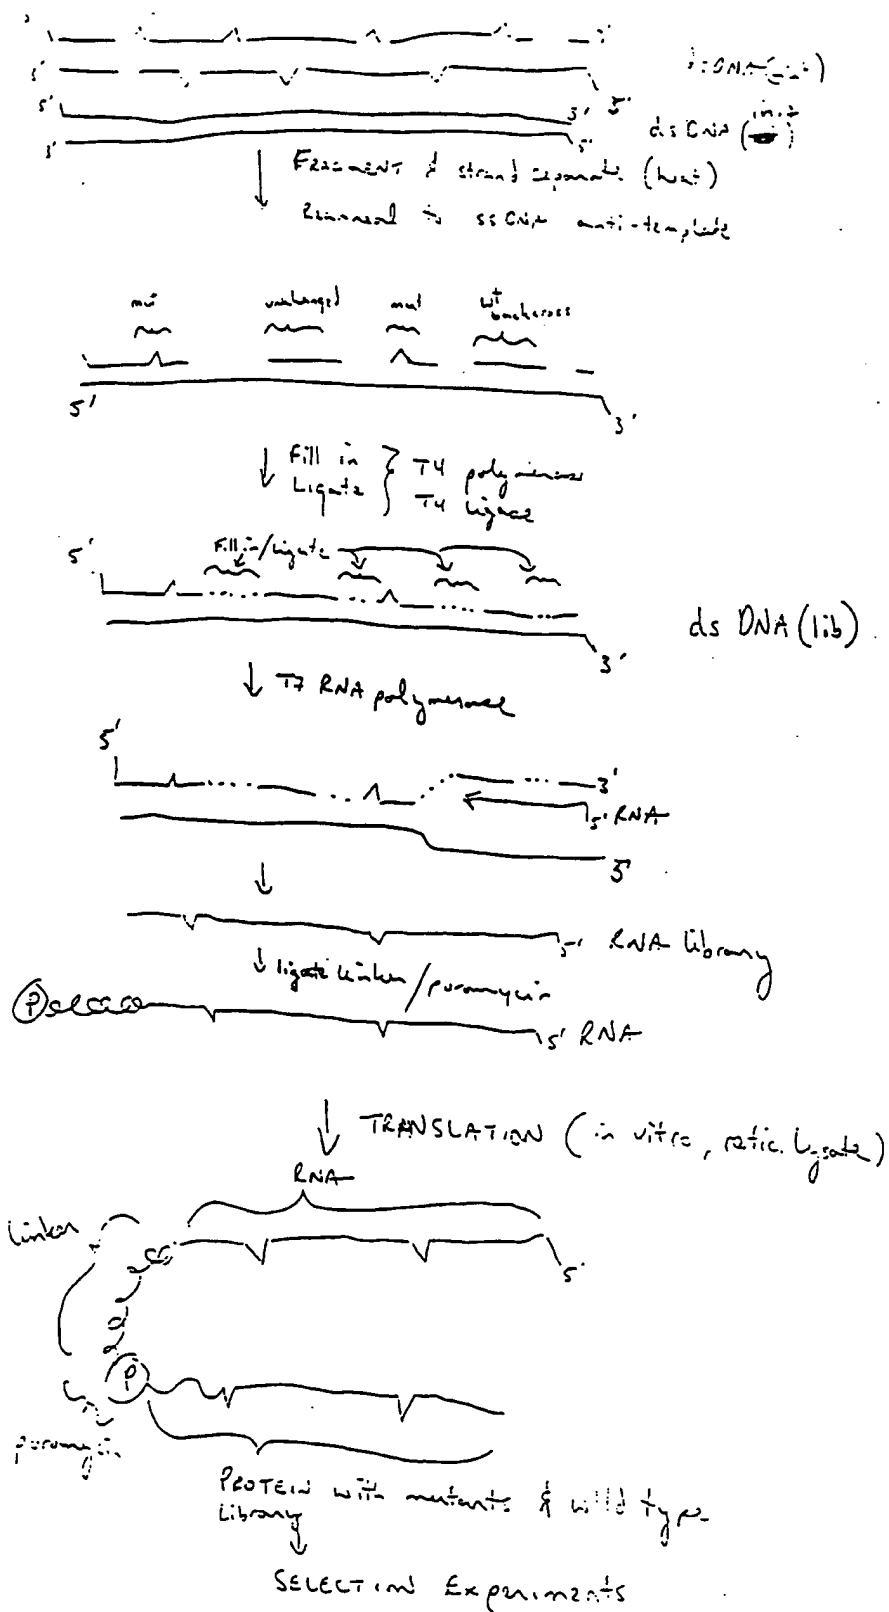 3'
5'
3' 5'
ds DNA (init)
3' 5'
FRAGMENT & strand separate (heat)
Reanneal to ss DNA anti-template
mut unchanged mut wt
backcross
5' 3'
Fill in } T4 polymerase
Ligate } T4 ligase
5' Fill in/Ligate
ds DNA (lib)
3'
T7 RNA polymerase
5'
3'
5' RNA
3'
5' RNA library
ligate linker/puromycin
P
5' RNA
TRANSLATION (in vitro, retic. lysate)
RNA
linker
5'
P
puromycin
PROTEIN with mutants & wild type
Library
SELECTION Experiments